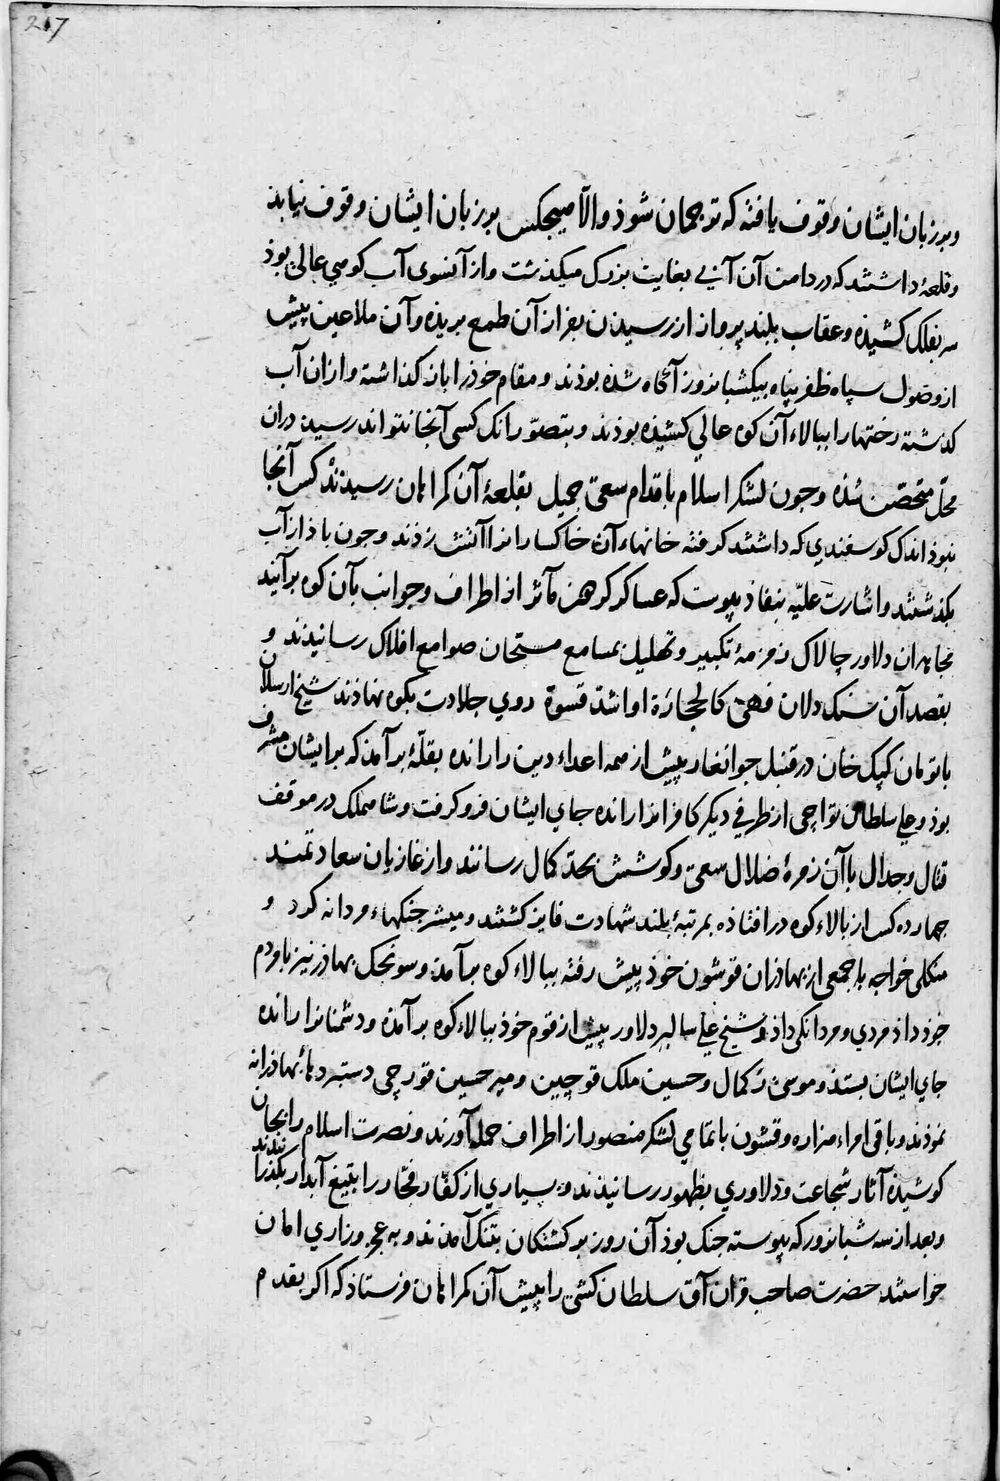 217
وبر زبان ایشان وقوف یافته که ترجمان شوذ والّا هیچکس بر زبان ایشان وقوف نیابذ
وقلعهٔ داشتند که در دامن آن آبی بغایت بزرک میکذشت واز آنسوی آب کوهی عالی بوذ
سر بفلک کشیذه وعقاب بلند پرواز از رسیذن بفراز آن طمع بریذه وآن ملاعین پیش
از وصول سپاه ظفر پناه بیکشبانروز آکاه شذه بوذند ومقام خوذ را باز کذاشته واز ان آب
کذشته رختها را ببالاء آن کوه عالی کشیذه بوذند وبتصوّر انک کسی آنجا نتواند رسیذ دران
محلّ متحصّن شذه وجون لشکر اسلام باقدام سعی جمیل بقلعهٔ آن کمراهان رسیذند کس آنجا
نبوذ اندک کوسفندی که داشتند کرفته خانهاء آن خاکسارانرا آتش زذند وجون باذ از آب
بکذشتند واشارت علیّه بنفاذ پیوست که عساکر کردون مآثر از اطراف وجوانب بآن کوه برآیند
مجاهدان دلاور چالاک زمزمهٔ تکبیر وتهلیل بمسامع مسبّحان صوامع افلاک رسانیذند و
بقصد آن سنک دلان فهی کالحجارة او اشدّ قسوة روی جلادت بکوه نهاذند شیخ ارسلان
با تومان کبک خان در قنبل جوانغار پیش از همه اعداء دین را رانده بقلّهٔ برآمذ که بر ایشان مشرف
بوذ وعلی سلطان تواچی از طرفی دیکر کافرانرا رانده جای ایشان فرو کرفت وشاهملک در موقف
قتال وجدال باآن زمرهٔ ضلال سعی وکوشش بحدّ کمال رسانند واز غازیان سعادتمند
جهارده کس از بالاء کوه در افتاذه بمرتبهٔ بلند شهادت فایز کشتند ومبشر جنکهاء مردانه کرد و
منکلی خواجه با جمعی از بهاذران قوشون خوذ پیش رفته ببالاء کوه برآمذ وسونجک بهاذر نیز با مردم
خوذ داذ مردی ومردانکی داذ وشیخ علی سالبر دلاور پیش از قوم خوذ ببالاء کوه برآمذه ودشمنانرا رانده
جای ایشان بستذ وموسی رکمال وحسین ملک قوچین ومیر حسین قورچی دستبردهاء بهاذرانه
نموذند وباقی امراء هزاره وقشون با تمامی لشکر منصور از اطراف حمله آورند ونصرت اسلام را بجان
کوشیذه آثار شجاعت ودلاوری بظهور رسانیذند وبسیاری از کفّار فجّار را بتیغ آبدار بکذرانیذند
وبعد از سه شبانروز که پیوسته جنک بوذ آن روز برکشتکان بتنک آمذند وبه عجز وزاری امان
خواستند حضرت صاحب قران آق سلطان کشی را پیش آن کمراهان فرستاذ که اکر بقدم